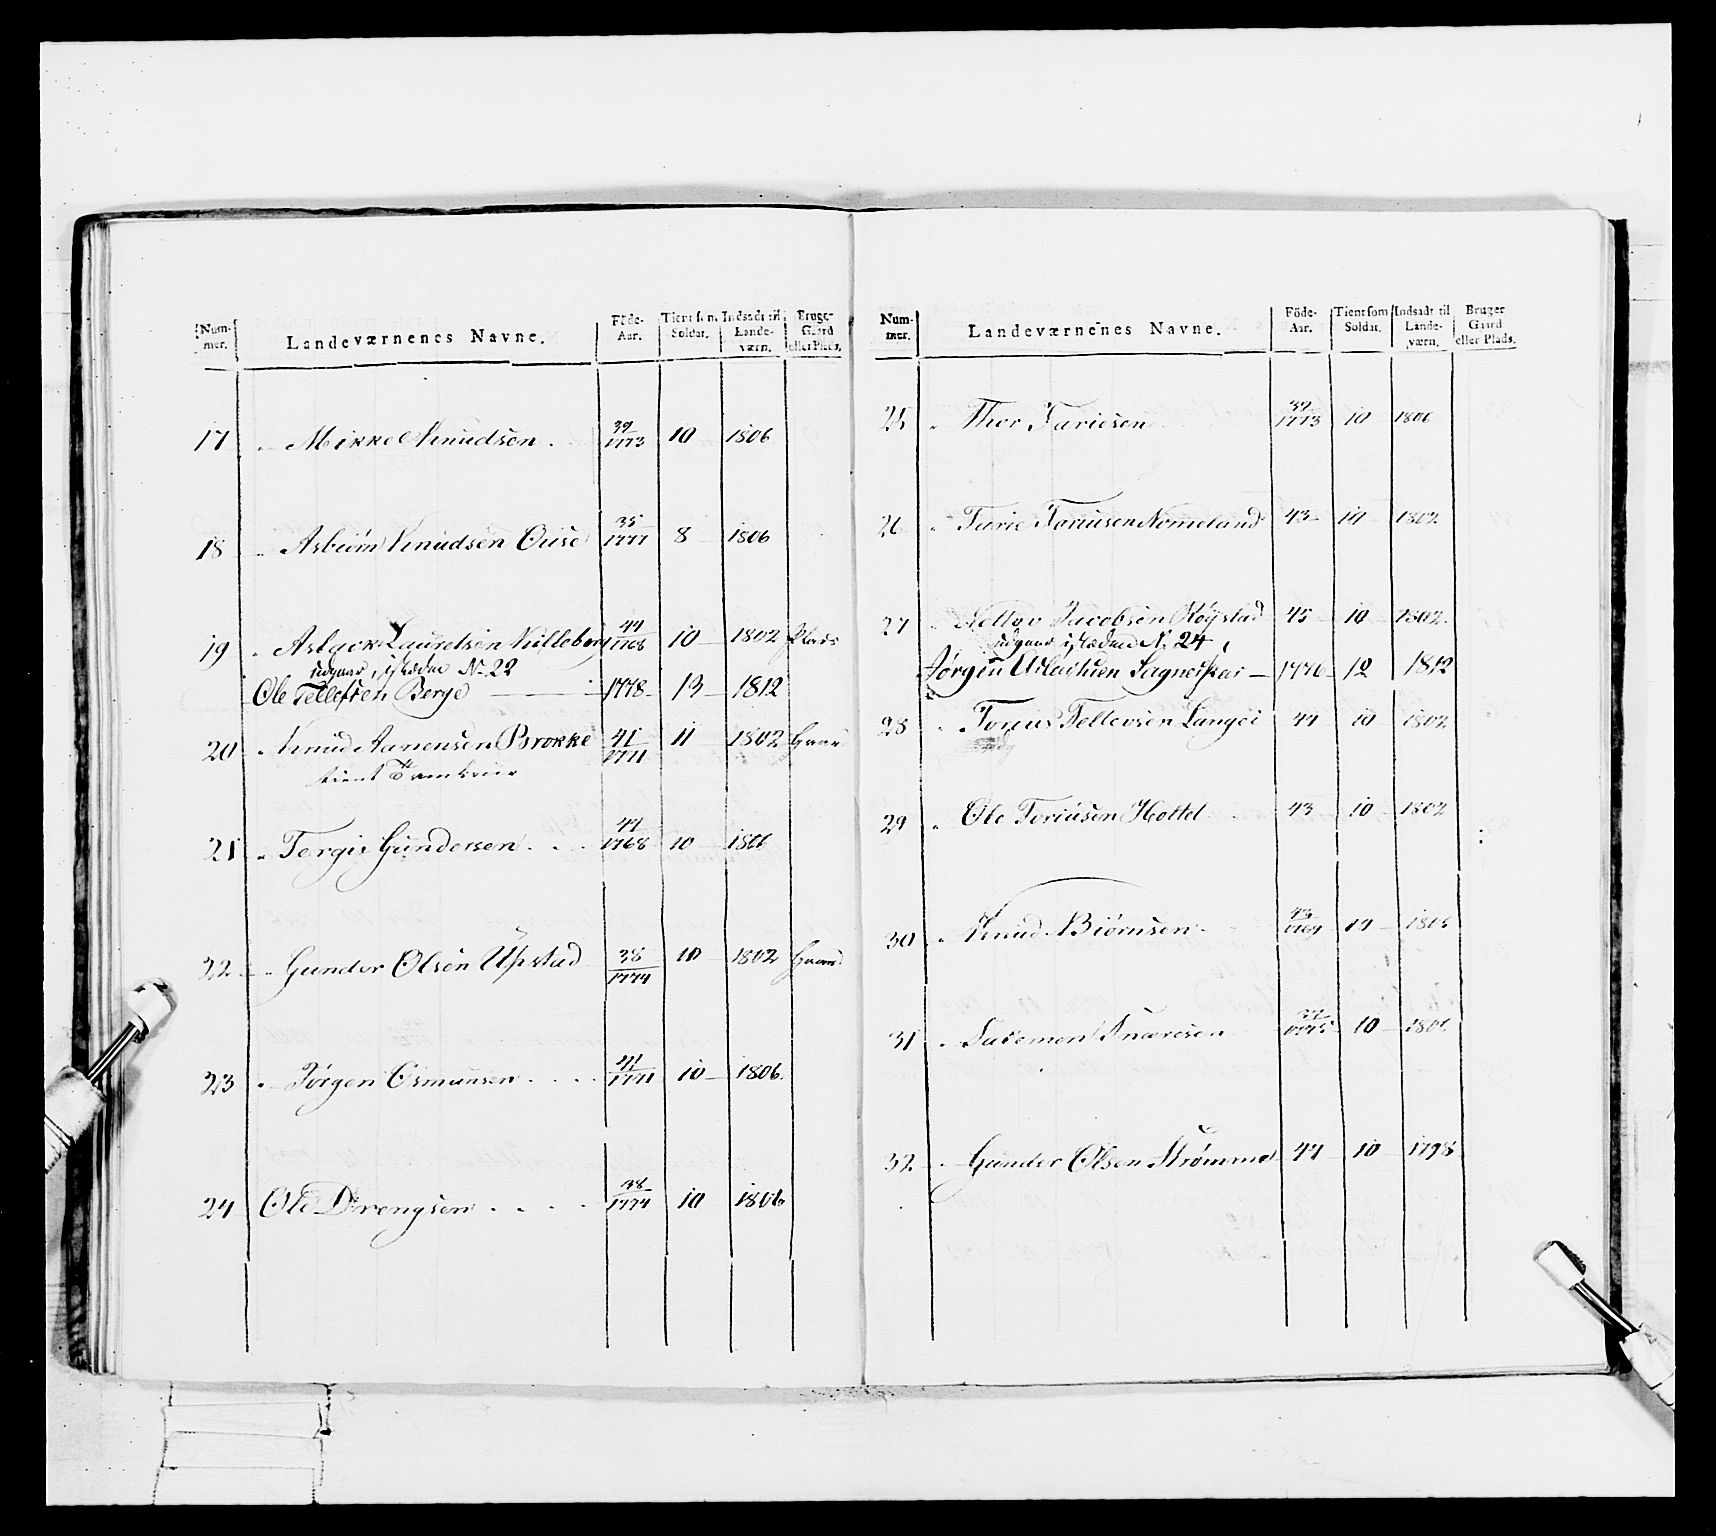 Num-mer. Landeværnenes Navne. Föde-Aar. Tient som Soldat. Indsadt til Lande-værn. Bruger Gaard eller Plads.
17 " Mikkel Knudsen . 39/1773 10 1806
18 " Asbiörn Knudsen Ouse 35/1777 8 1806
19 " Aslack Lauretsen Nilleberg 44/1768 10 1802 Plads
udgaar, istæden No 22
Ole Tellefsen Berge 1778 13 1812
20 " Knud Aanensen Brokke 41/1771 11 1802 Gaard
tient
21 " Tergie Gundersen . . . 44/1768 10 1806
22 " Gunder Olsen Upstad 38/1774 10 1802 Gaard
23 " Jörgen Osmunsen . . . . 41/1771 10 1806.
24 Ole Drengsen . . . . 38/1774 10 1806
Num-mer. Landeværnenes Navne. Föde-Aar. Tient som Soldat. Indsadt til Lande-værn. Bruger Gaard eller Plads.
25 " Thor Tariesen 39/1773 10 1806
26 " Tarie Tariusen Nomeland 43 10 1802
27 " Jacobsen Röystad 45 10 1802
udgaar istæden No 24
Jørgen 1776 12 1812
28 " Torius Tellevsen Langei 44 10 1802
29 " Ole Toriusen Hottel 43 10 1802
30 " Knud Biörnsen 43/1769 14 1806
31 " Salomon Knaresen 37/1775 10 1806
32 " Gunder Olsen Strömme 44 10 1798